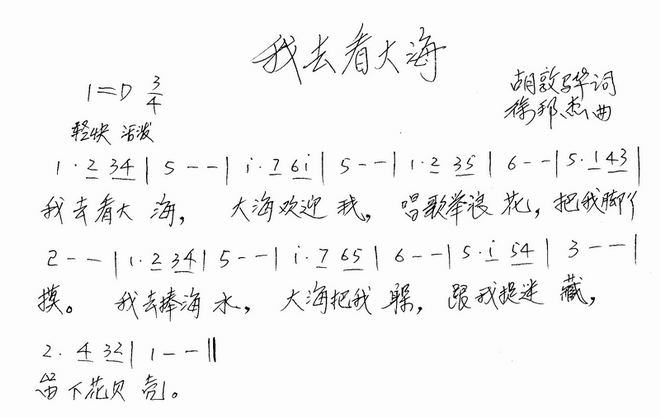 我去看大海
1=D 3/4
胡敦骅词
徐邦杰曲
轻快 活泼
1·2 34 | 5 - - | i·7 6i | 5 - - | 1·2 35 | 6 - - | 5·1 43 |
我去看大 海， 大海欢迎 我， 唱歌举浪 花，把我脚丫
2 - - | 1·2 34 | 5 - - | i·7 65 | 6 - - | 5·i 54 | 3 - - |
摸。 我去捧海 水， 大海把我 躲， 跟我捉迷 藏，
2· 4 32 | 1 - - ||
留下花贝 壳。